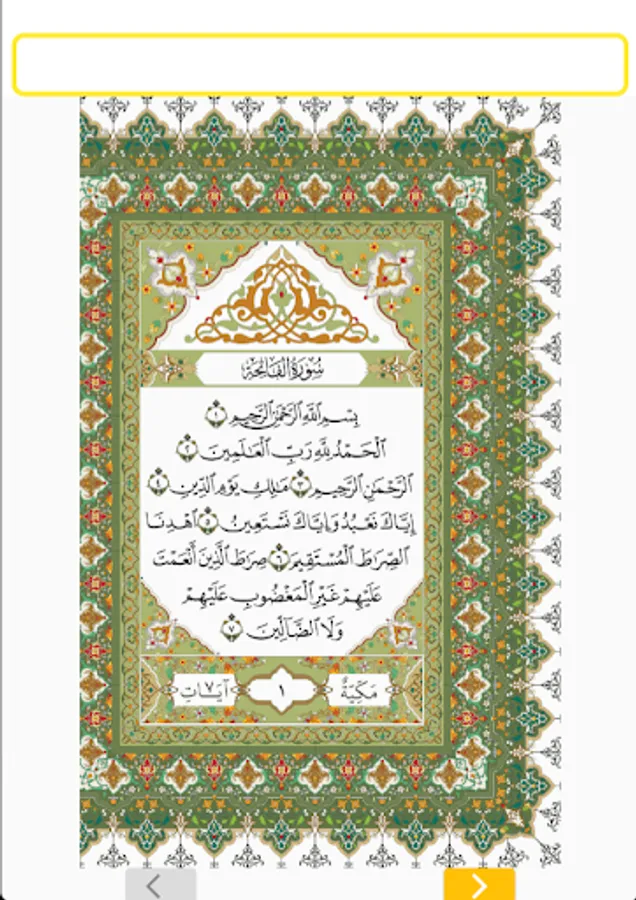 سُورَةُ الْفَاتِحَةِ
بِسْمِ اللَّهِ الرَّحْمَٰنِ الرَّحِيمِ ١
الْحَمْدُ لِلَّهِ رَبِّ الْعَالَمِينَ ٢
الرَّحْمَٰنِ الرَّحِيمِ ٣ مَالِكِ يَوْمِ الدِّينِ ٤
إِيَّاكَ نَعْبُدُ وَإِيَّاكَ نَسْتَعِينُ ٥ اهْدِنَا
الصِّرَاطَ الْمُسْتَقِيمَ ٦ صِرَاطَ الَّذِينَ أَنْعَمْتَ
عَلَيْهِمْ غَيْرِ الْمَغْضُوبِ عَلَيْهِمْ
وَلَا الضَّالِّينَ ٧
مَكِيَّةٌ ١ آيَاتِ ٧